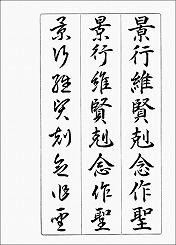 景行維賢剋念作聖
景行維賢剋念作聖
景行維賢剋念作聖